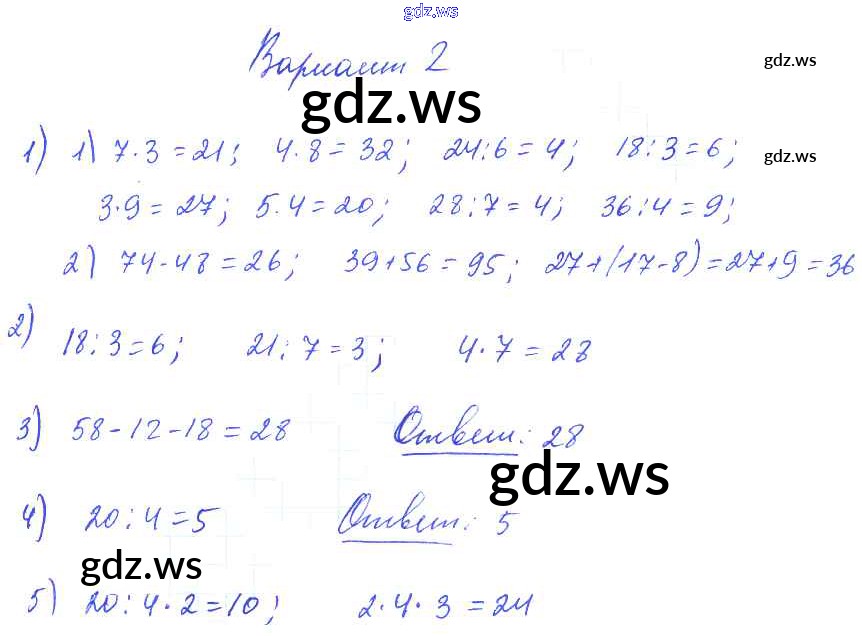 gdz.ws
Вариант 2
gdz.ws
gdz.ws
1) 1) 7·3=21; 4·8=32; 24:6=4; 18:3=6;
gdz.ws
3·9=27; 5·4=20; 28:7=4; 36:4=9;
2) 74-48=26; 39+56=95; 27+(17-8)=27+9=36
2) 18:3=6; 21:7=3; 4·7=28
3) 58-12-18=28 Ответ: 28
gdz.ws
4) 20:4=5 Ответ: 5
gdz.ws
5) 20:4·2=10; 2·4·3=24